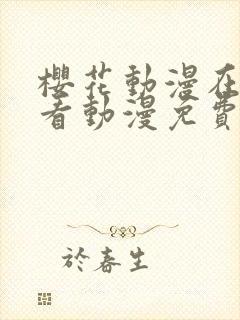 櫻花動漫在
看動漫免費
於春生